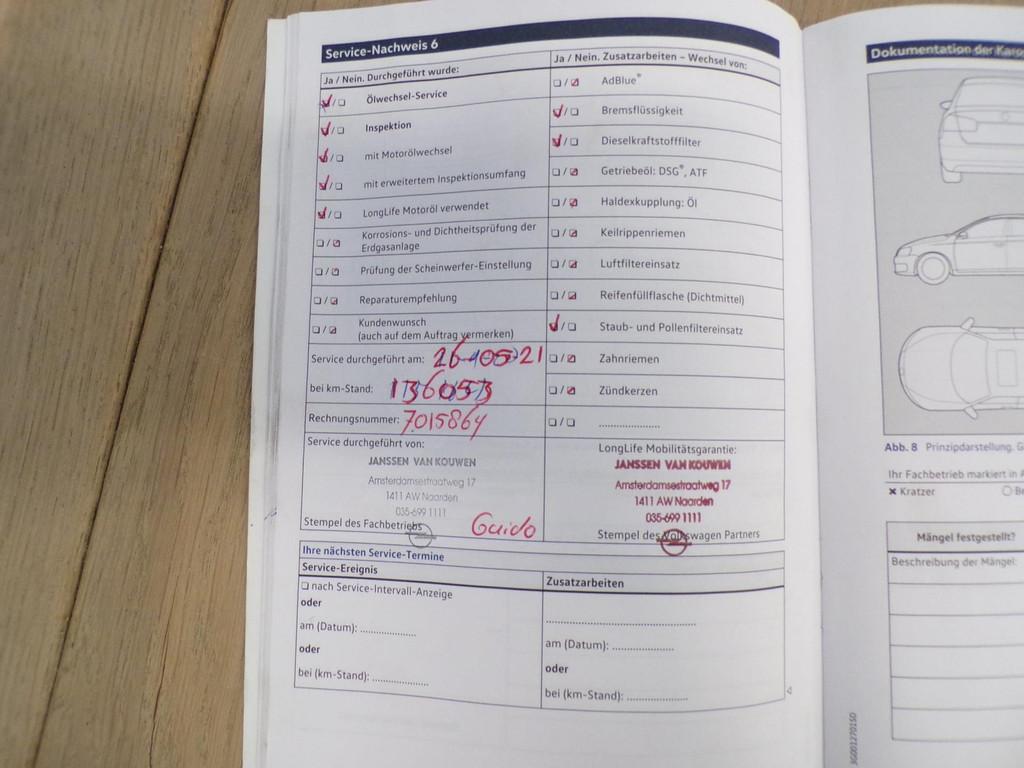 Service-Nachweis 6
Ja / Nein. Durchgeführt wurde:
Ölwechsel-Service
Inspektion
mit Motorölwechsel
mit erweitertem Inspektionsumfang
LongLife Motoröl verwendet
Korrosions- und Dichtheitsprüfung der
Erdgasanlage
Prüfung der Scheinwerfer-Einstellung
Reparaturempfehlung
Kundenwunsch
(auch auf dem Auftrag vermerken)
Service durchgeführt am: 26-05-21
bei km-Stand: 136053
Rechnungsnummer: 7015864
Service durchgeführt von:
JANSSEN VAN KOUWEN
Amsterdamsestraatweg 17
1411 AW Naarden
035-699 1111
Guido
Stempel des Fachbetriebs
Ja / Nein. Zusatzarbeiten – Wechsel von:
AdBlue®
Bremsflüssigkeit
Dieselkraftstofffilter
Getriebeöl: DSG®, ATF
Haldexkupplung: Öl
Keilrippenriemen
Luftfiltereinsatz
Reifenfüllflasche (Dichtmittel)
Staub- und Pollenfiltereinsatz
Zahnriemen
Zündkerzen
LongLife Mobilitätsgarantie:
JANSSEN VAN KOUWEN
Amsterdamsestraatweg 17
1411 AW Naarden
035-699 1111
Stempel des Volkswagen Partners
Ihre nächsten Service-Termine
Service-Ereignis
nach Service-Intervall-Anzeige
oder
am (Datum): ..................
oder
bei (km-Stand): ..................
Zusatzarbeiten
am (Datum): ..................
oder
bei (km-Stand): ..................
Dokumentation der
Abb. 8 Prinzipdarstellung.
Ihr Fachbetrieb markiert in
× Kratzer
Mängel festgestellt?
Beschreibung der Mängel:
3G0012701SD